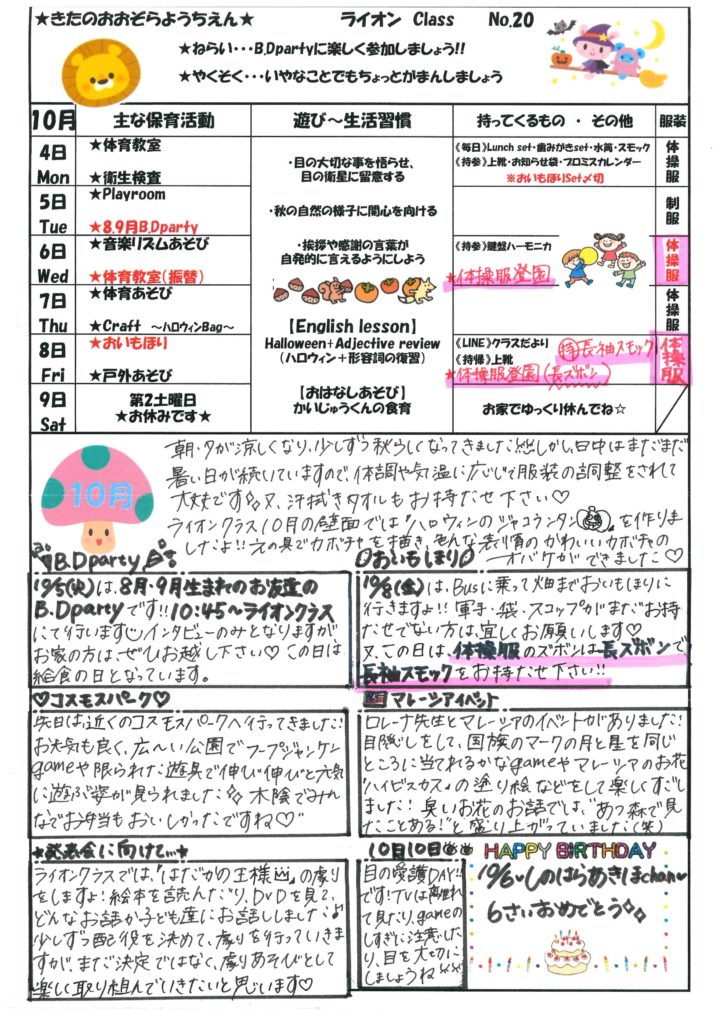 ★きたのおおぞらようちえん★ ライオン Class No.20
★ねらい・・・B.Dpartyに楽しく参加しましょう!!
★やくそく・・・いやなことでもちょっとがまんしましょう
10月 主な保育活動 遊び～生活習慣 持ってくるもの ・ その他 服装
4日 Mon
★体育教室
★衛生検査
5日 Tue
★Playroom
★8.9月B.Dparty
6日 Wed
★音楽リズムあそび
★体育教室(振替)
7日 Thu
★体育あそび
★Craft ～ハロウィンBag～
8日 Fri
★おいもほり
★戸外あそび
9日 Sat
第2土曜日
★お休みです★
・目の大切な事を悟らせ、
目の衛星に留意する
・秋の自然の様子に関心を向ける
・挨拶や感謝の言葉が
自発的に言えるようにしよう
【English lesson】
Halloween+Adjective review
(ハロウィン+形容詞の復習)
【おはなしあそび】
かいじゅうくんの食育
《毎日》Lunch set・歯みがきset・水筒・スモック
《持参》上靴・お知らせ袋・プロミスカレンダー
※おいもほりSet〆切
《持参》鍵盤ハーモニカ
★体操服登園
《LINE》クラスだより 持 長袖スモック
《持帰》上靴
★体操服登園(長ズボン)
お家でゆっくり休んでね☆
体操服
制服
体操服
体操服
体操服
10月
朝・夕が涼しくなり、少しずつ秋らしくなってきました しかし、日中はまだまだ
暑い日が続いていますので、体調や気温に応じて服装の調整をされて
大丈夫です 又、汗拭きタオルもお持たせ下さい♡
ライオンクラス10月の壁面では"ハロウィンのジャコランタン"を作りま
したよ!! 絵の具でカボチャを描き、色んな表情のかわいいカボチャの
オバケができました♡
B.Dparty
10/5(火)は、8月・9月生まれのお友達の
B.Dpartyです!! 10:45～ライオンクラス
にて行います インタビューのみとなりますが
お家の方は、ぜひお越し下さい♡ この日は
給食の日となっています。
おいもほり
10/8(金)は、Busに乗って畑までおいもほりに
行きますよ!! 軍手・袋・スコップがまだお持
たせでない方は、宜しくお願いします♡
又、この日は、体操服のズボンは長ズボンで
長袖スモックをお持たせ下さい!!
♡コスモスパーク♡
先日は近くのコスモスパークへ行ってきました!
お天気も良く、広～い公園でフープジャンケン
gameや限られた遊具で伸び伸びと元気
に遊ぶ姿が見られました 木陰でみん
なでお弁当もおいしかったですね♡"
マレーシアイベント
ロレーナ先生とマレーシアのイベントがありました!
目隠しをして、国旗のマークの月と星を同じ
ところに当てれるかなgameやマレーシアのお花
"ハイビスカス"の塗り絵などをして楽しくすご
しました! 臭いお花のお話では、"あつ森で見
たことある!"と盛り上がっていました(笑)
★発表会に向けて...★
ライオンクラスでは、"はだかの王様"の劇り
をしますよ! 絵本を読んだり、DVDを見て、
どんなお話か子ども達にお話ししました♪
少しずつ配役を決めて、劇りを行っていきま
すが、まだ決定ではなく、劇りあそびとして
楽しく取り組んでいきたいと思います♡
10月10日
目の愛護DAY!!
です! TVは離れ
て見たり、gameの
しすぎに注意した
り、目を大切に
しましょうね
HAPPY BIRTHDAY
10/6♥しのはらあきほchan♥
6さいおめでとう